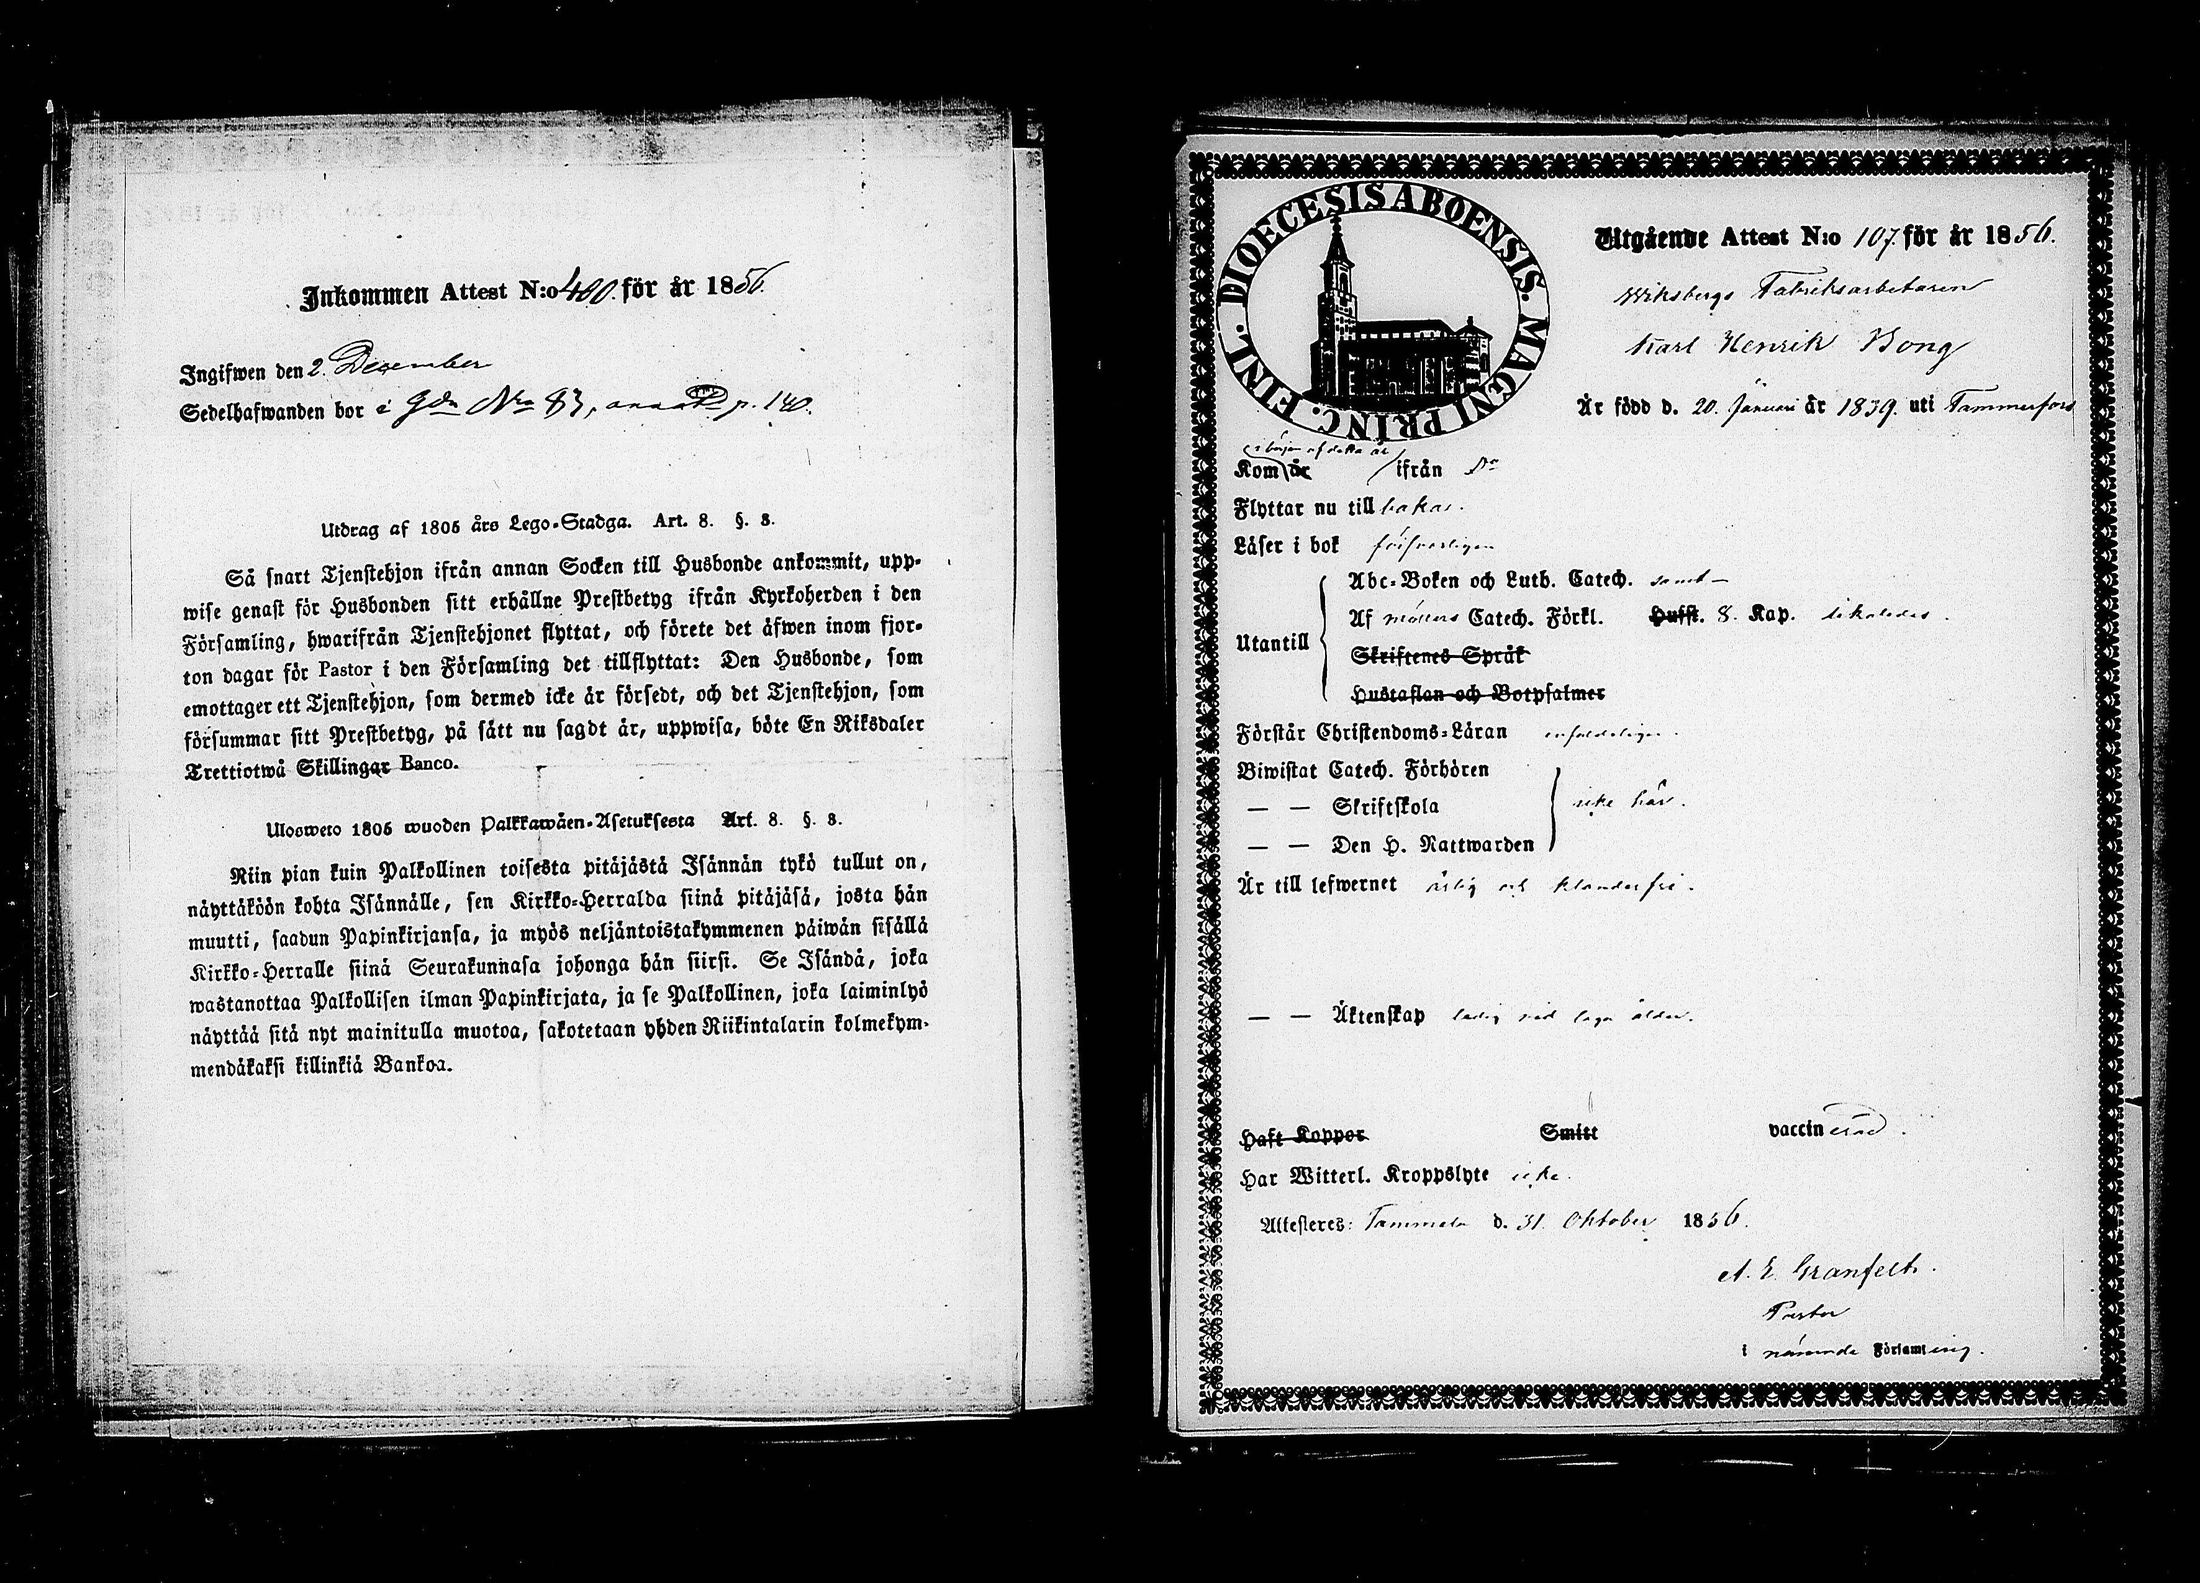 Inkommen Attest N:o 480. för år 1856.
Ingifwen den 2. December
Sedelhafwanden bor i gdn Nro 83, p. 140.
Utdrag af 1805 års Lego-Stadga. Art. 8. §. 8.
Så snart Tjenstehjon ifrån annan Socken till Husbonde ankommit, upp-
wise genast för Husbonden sitt erhållne Prestbetyg ifrån Kyrkoherden i den
Församling, hwarifrån Tjenstehjonet flyttat, och förete det äfwen inom fjor-
ton dagar för Pastor i den Församling det tillflyttat: Den Husbonde, som
emottager ett Tjenstehjon, som dermed icke är försedt, och det Tjenstehjon, som
försummar sitt Prestbetyg, på sätt nu sagdt är, uppwisa, böte En Riksdaler
Trettiotwå Skillingar Banco.
Ulosweto 1805 wuoden Palkkawäen-Asetuksesta Art. 8. §. 8.
Niin pian kuin Palkollinen toisesta pitäjästä Isännän tykö tullut on,
näyttäköön kohta Isännälle, sen Kirkko-Herralda siinä pitäjäsä, josta hän
muutti, saadun Papinkirjansa, ja myös neljäntoistakymmenen päiwän sisällä
Kirkko-Herralle siinä Seurakunnasa johonga hän siirsi. Se Isändä, joka
wastanottaa Palkollisen ilman Papinkirjata, ja se Palkollinen, joka laiminlyö
näyttää sitä nyt mainitulla muotoa, sakotetaan yhden Riikintalarin kolmekym-
mendäkaksi killinkiä Bankoa.
DIOECESIS ABOENSIS. MAGNI PRINC. FINL.
Utgående Attest N:o 107. för år 1856.
Wiksbergs Fabriksarbetaren
Karl Henrik Bong
Är född d. 20. Januari år 1839. uti Tammerfors
i början af detta år
Kom år ifrån Do
Flyttar nu till bakas.
Läser i bok försvarligen
Abc-Boken och Luth. Catech. samt
Utantill
Af möllers Catech. Förkl. Hufst. 8. Kap. likaledes.
Skriftenes Språk
Hustaflan och Botpsalmer
Förstår Christendoms-Läran enfaldeligen.
Biwistat Catech. Förhören
— — Skriftskola icke här.
— — Den H. Nattwarden
Är till lefwernet ärlig och klanderfri.
— — Äktenskap ledig vid laga ålder.
Haft Koppor Smitt vaccinerad.
Har Witterl. Kroppslyte icke.
Attesteres: Tammela d. 31. Oktober 1856.
A. E. Granfelt.
Pastor
i nämnde Församling.